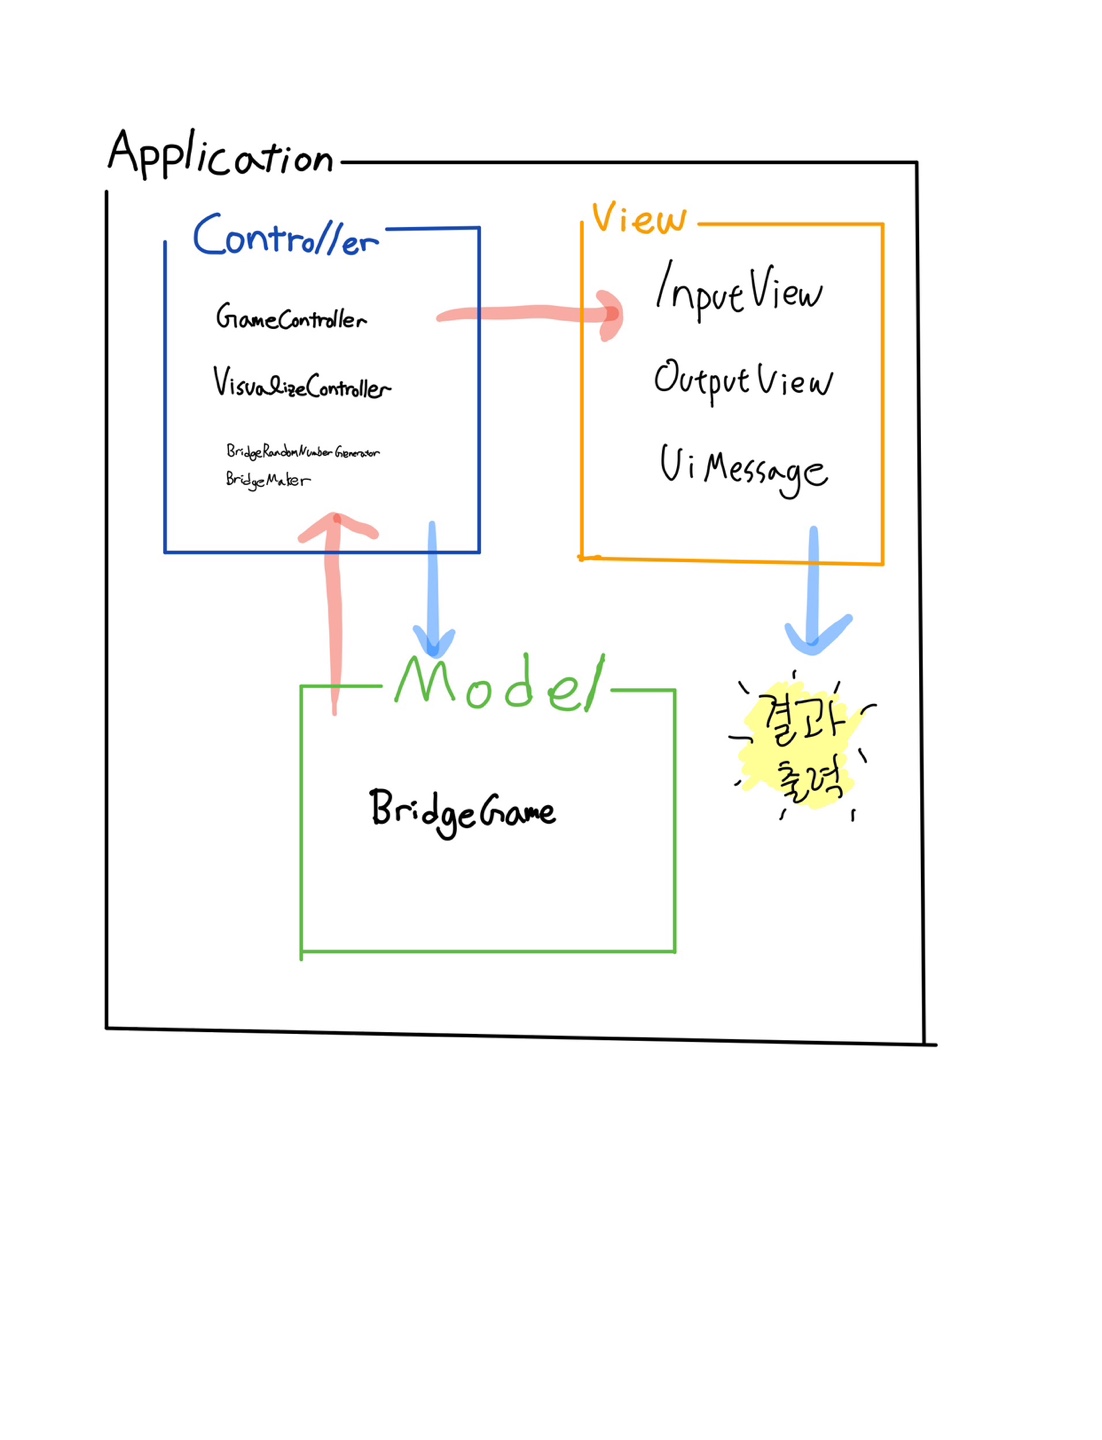 Application
Controller
GameController
VisualizeController
BridgeRandomNumberGenerator
BridgeMaker
View
InputView
OutputView
UiMessage
Model
BridgeGame
결과
출력